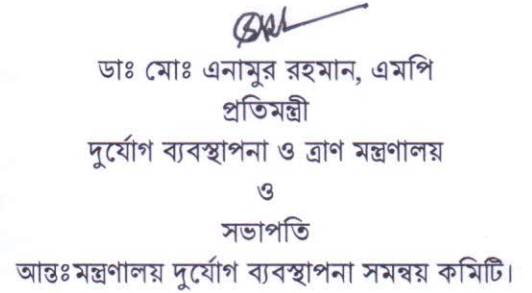 ডাঃ মোঃ এনামুর রহমান, এমপি
প্রতিমন্ত্রী
দুর্যোগ ব্যবস্থাপনা ও ত্রাণ মন্ত্রণালয়
ও
সভাপতি
আন্তঃমন্ত্রণালয় দুর্যোগ ব্যবস্থাপনা সমন্বয় কমিটি।